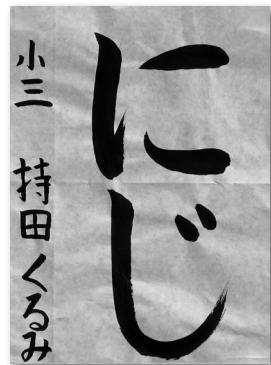 にじ
小三 持田くるみ